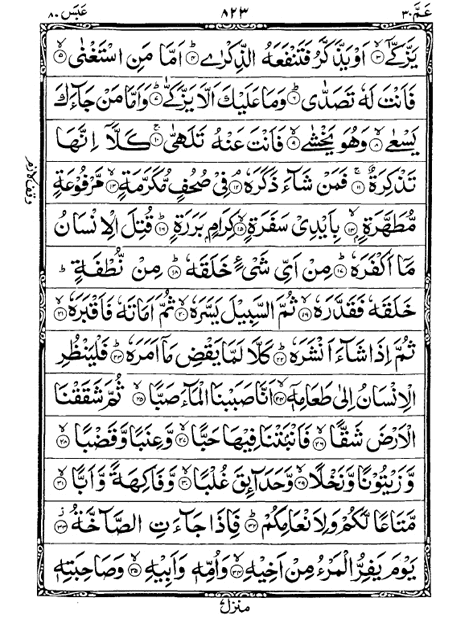 عَبَسَ ٨٠ ٨٢٣ عَمَّ ٣٠
يَزَّكّٰۤى ۙ﴿۳﴾ اَوْ يَذَّكَّرُ فَتَنْفَعَهُ الذِّكْرٰى ؕ﴿۴﴾ اَمَّا مَنِ اسْتَغْنٰى ۙ﴿۵﴾
فَاَنْتَ لَهٗ تَصَدّٰى ؕ﴿۶﴾ وَمَا عَلَيْكَ اَلَّا يَزَّكّٰى ؕ﴿۷﴾ وَاَمَّا مَنْ جَآءَكَ
يَسْعٰى ۙ﴿۸﴾ وَهُوَ يَخْشٰى ۙ﴿۹﴾ فَاَنْتَ عَنْهُ تَلَهّٰى ۚ﴿۱۰﴾ كَلَّاۤ اِنَّهَا
تَذْكِرَةٌ ۚ﴿۱۱﴾ فَمَنْ شَآءَ ذَكَرَهٗ ۘ﴿۱۲﴾ فِىْ صُحُفٍ مُّكَرَّمَةٍ ۙ﴿۱۳﴾ مَّرْفُوْعَةٍ
مُّطَهَّرَةٍۭ ۙ﴿۱۴﴾ بِاَيْدِىْ سَفَرَةٍ ۙ﴿۱۵﴾ كِرَامٍۭ بَرَرَةٍ ؕ﴿۱۶﴾ قُتِلَ الْاِنْسَانُ
مَاۤ اَكْفَرَهٗ ؕ﴿۱۷﴾ مِنْ اَىِّ شَىْءٍ خَلَقَهٗ ؕ﴿۱۸﴾ مِنْ نُّطْفَةٍ ؕ
خَلَقَهٗ فَقَدَّرَهٗ ۙ﴿۱۹﴾ ثُمَّ السَّبِيْلَ يَسَّرَهٗ ۙ﴿۲۰﴾ ثُمَّ اَمَاتَهٗ فَاَقْبَرَهٗ ۙ﴿۲۱﴾
ثُمَّ اِذَا شَآءَ اَنْشَرَهٗ ؕ﴿۲۲﴾ كَلَّا لَمَّا يَقْضِ مَاۤ اَمَرَهٗ ؕ﴿۲۳﴾ فَلْيَنْظُرِ
الْاِنْسَانُ اِلٰى طَعَامِهٖۤ ۙ﴿۲۴﴾ اَنَّا صَبَبْنَا الْمَآءَ صَبًّا ۙ﴿۲۵﴾ ثُمَّ شَقَقْنَا
الْاَرْضَ شَقًّا ۙ﴿۲۶﴾ فَاَنْۢبَتْنَا فِيْهَا حَبًّا ۙ﴿۲۷﴾ وَّعِنَبًا وَّقَضْبًا ۙ﴿۲۸﴾
وَّزَيْتُوْنًا وَّنَخْلًا ۙ﴿۲۹﴾ وَّحَدَآئِقَ غُلْبًا ۙ﴿۳۰﴾ وَّفَاكِهَةً وَّاَبًّا ۙ﴿۳۱﴾
مَّتَاعًا لَّكُمْ وَلِاَنْعَامِكُمْ ؕ﴿۳۲﴾ فَاِذَا جَآءَتِ الصَّآخَّةُ ۫﴿۳۳﴾
يَوْمَ يَفِرُّ الْمَرْءُ مِنْ اَخِيْهِ ۙ﴿۳۴﴾ وَاُمِّهٖ وَاَبِيْهِ ۙ﴿۳۵﴾ وَصَاحِبَتِهٖ
وقف لازم
منزل ٧